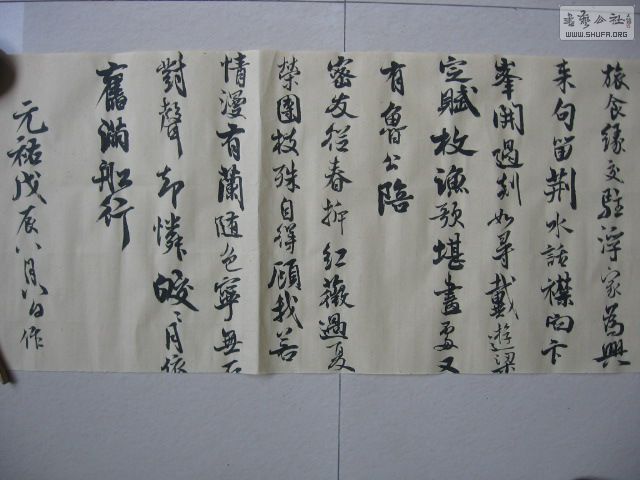 旅食緣交駐浮家為興
来句留荆水話襟向卞
峯開過剡如尋戴遊梁
定賦枚漁歌堪畫處又
有魯公陪
密友從春拆紅薇過夏
榮團枝殊自得顧我若
情漫有蘭隨色寧無石
對聲却憐皎〻月依
舊滿船行
元祐戊辰八月八日作
書藝公社
WWW.SHUFA.ORG